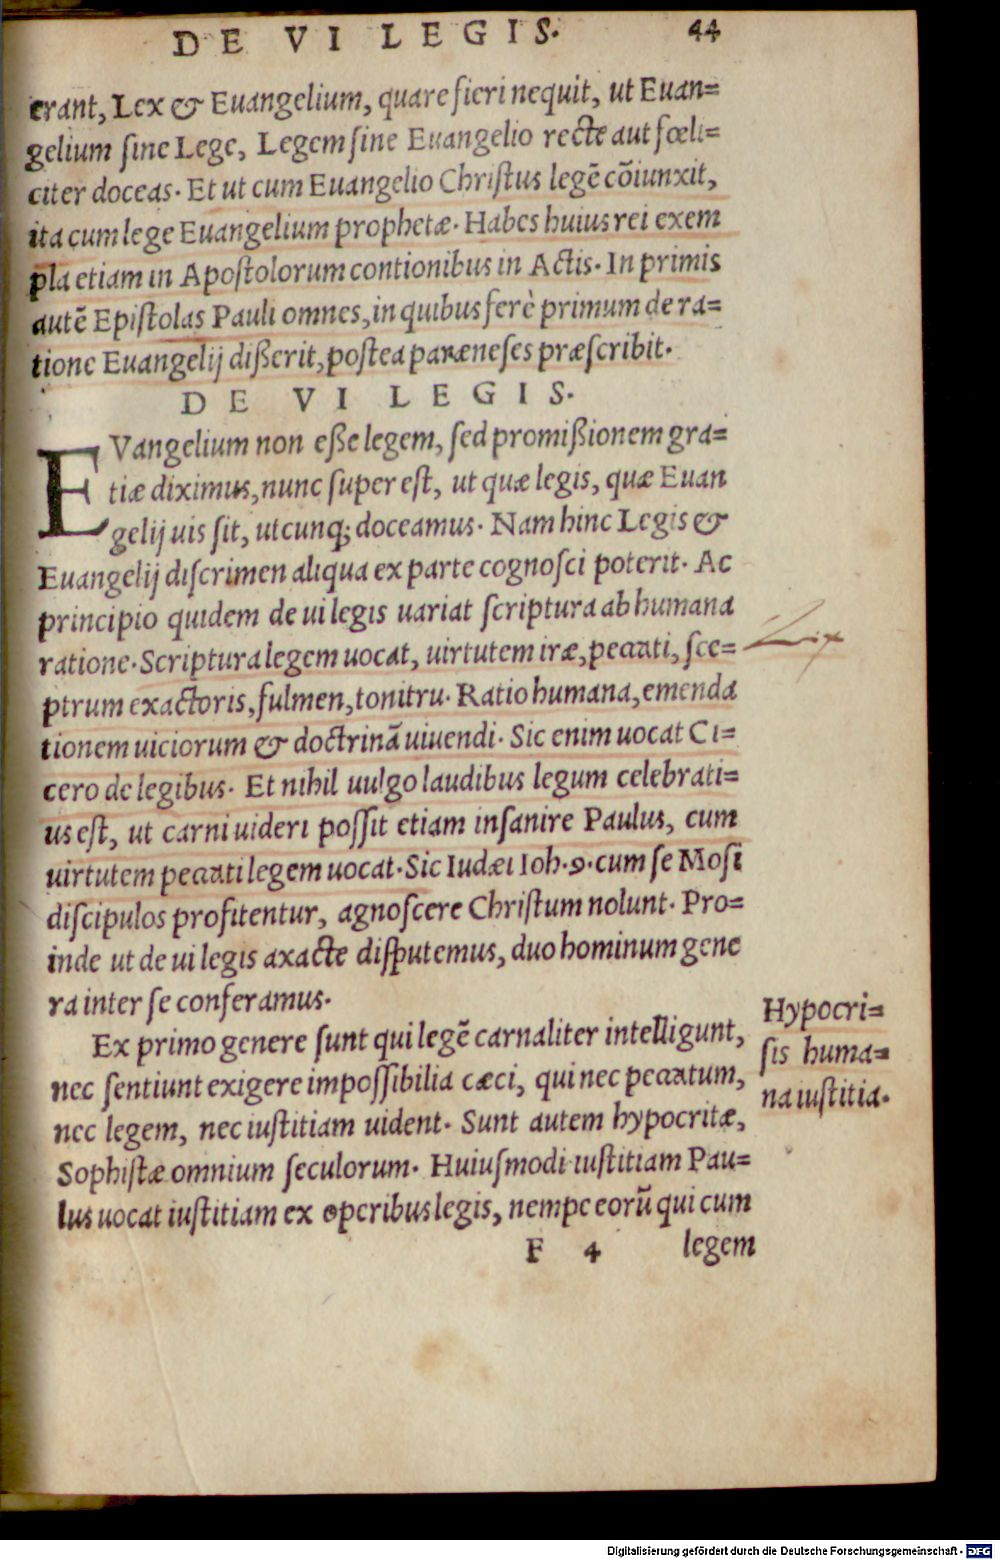 DE VI LEGIS. 44
erant, Lex & Euangelium, quare fieri nequit, ut Euan=
gelium ſine Lege, Legem ſine Euangelio recte aut fœli=
citer doceas. Et ut cum Euangelio Chriſtus legē cōiunxit,
ita cum lege Euangelium prophetæ. Habes huius rei exem
pla etiam in Apoſtolorum contionibus in Actis. In primis
autē Epiſtolas Pauli omnes, in quibus ferè primum de ra=
tione Euangelij dißerit, poſtea paræneſes præſcribit.
DE VI LEGIS.
EVangelium non eße legem, ſed promißionem gra=
tiæ diximus, nunc ſuper eſt, ut quæ legis, quæ Euan
gelij uis ſit, utcunq; doceamus. Nam hinc Legis &
Euangelij diſcrimen aliqua ex parte cognoſci poterit. Ac
principio quidem de ui legis uariat ſcriptura ab humana
ratione. Scriptura legem uocat, uirtutem iræ, peccati, ſce=
Lex
ptrum exactoris, fulmen, tonitru. Ratio humana, emenda
tionem uiciorum & doctrinā uiuendi. Sic enim uocat Ci=
cero de legibus. Et nihil uulgo laudibus legum celebrati=
us eſt, ut carni uideri poſſit etiam inſanire Paulus, cum
uirtutem peccati legem uocat. Sic Iudæi Ioh. 9. cum ſe Moſi
diſcipulos profitentur, agnoſcere Chriſtum nolunt. Pro=
inde ut de ui legis axacte diſputemus, duo hominum gene
ra inter ſe conferamus.
Ex primo genere ſunt qui legē carnaliter intelligunt,
nec ſentiunt exigere impoſſibilia cæci, qui nec peccatum,
nec legem, nec iuſtitiam uident. Sunt autem hypocritæ,
Sophiſtæ omnium ſeculorum. Huiuſmodi iuſtitiam Pau=
lus uocat iuſtitiam ex operibus legis, nempe eorū qui cum
Hypocri=
ſis huma=
na iuſtitia.
F 4 legem
Digitalisierung gefördert durch die Deutsche Forschungsgemeinschaft - DFG